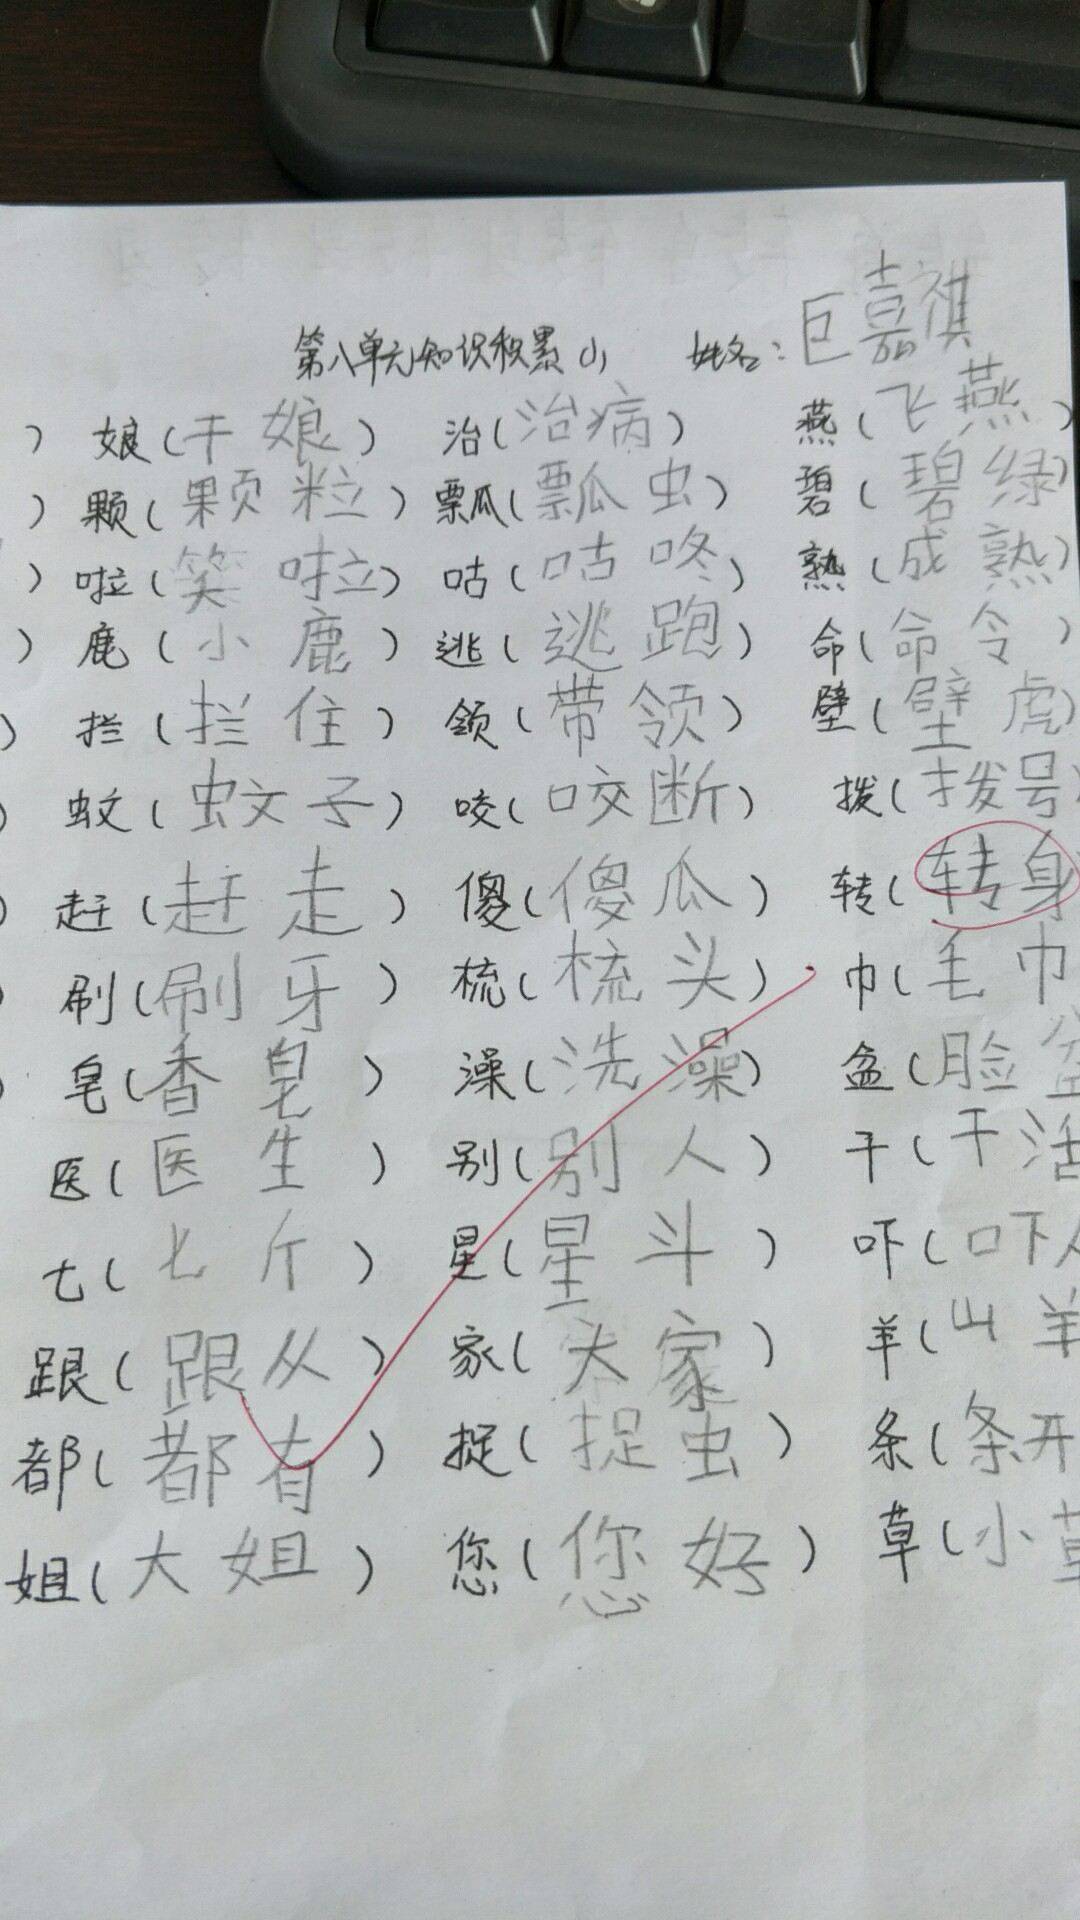 第八单元知识积累(1) 姓名：巨嘉祺
) 娘(干娘) 治(治病) 燕(飞燕)
) 颗(颗粒) 瓢(瓢虫) 碧(碧绿)
) 啦(笑啦) 咕(咕咚) 熟(成熟)
) 鹿(小鹿) 逃(逃跑) 命(命令)
) 拦(拦住) 领(带领) 壁(壁虎)
) 蚊(蚊子) 咬(咬断) 拨(拨号)
) 赶(赶走) 傻(傻瓜) 转(转身
) 刷(刷牙) 梳(梳头) 巾(毛巾
) 皂(香皂) 澡(洗澡) 盆(脸盆
医(医生) 别(别人) 干(干活
七(七斤) 星(星斗) 吓(吓人
跟(跟从) 家(大家) 羊(山羊
都(都有) 捉(捉虫) 条(条开
姐(大姐) 您(您好) 草(小草